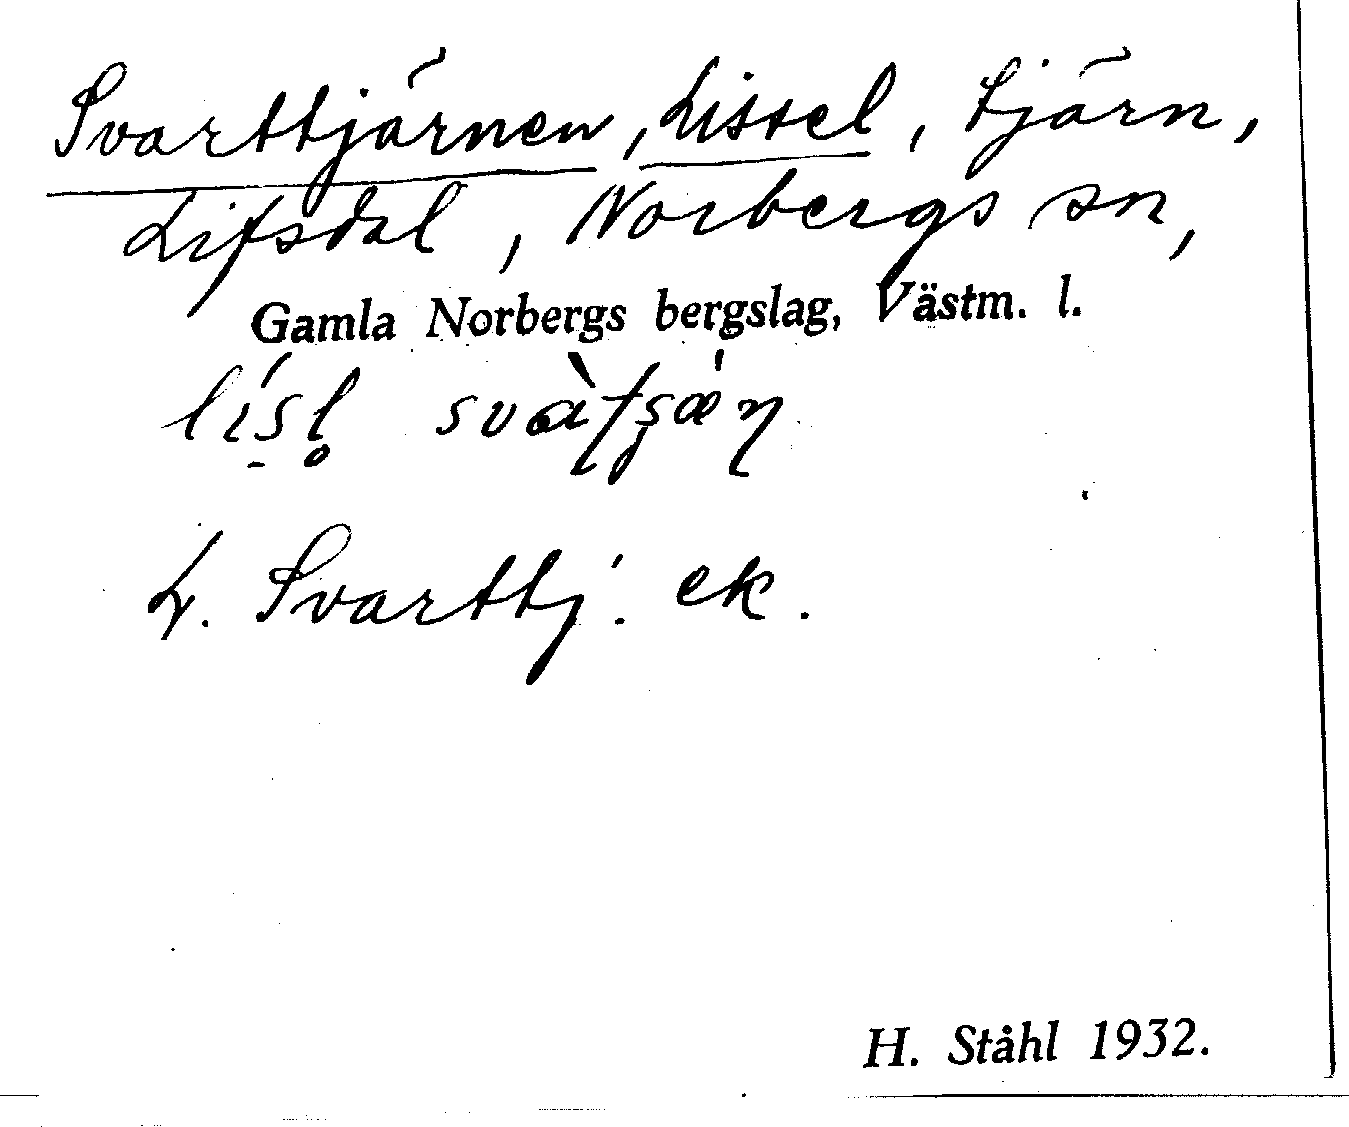 Svarttjärnen, Lissel, tjärn,
Lifsdal, Norbergs sn,
Gamla Norbergs bergslag, Västm. l.
L. Svarttj. ek.
H. Ståhl 1932.